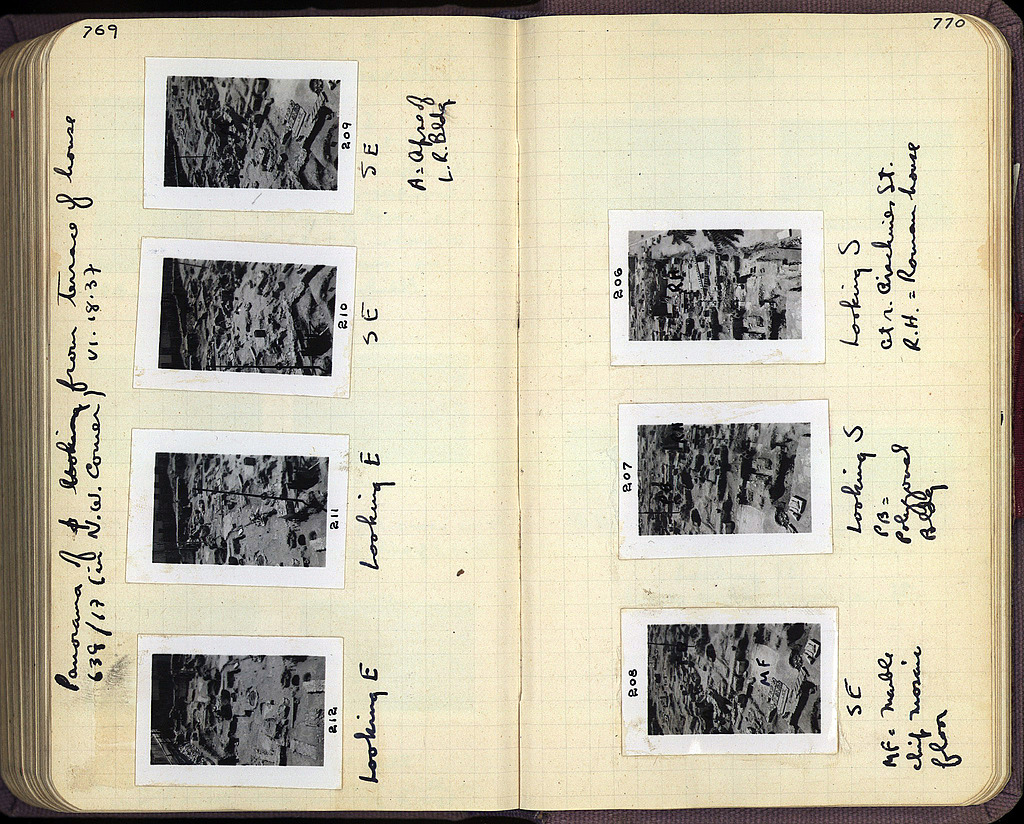 769
Panorama of looking from terrace of house
638/17 (in N.W. Corner) VI.18.37
212
Looking E
211
Looking E
210
SE
209
SE
A = Apse of
L.R. Bldg
770
208
MF
SE
MF = Marble
chip mosaic
floor
207
Looking S
PB =
Polygonal
Bldg
206
RH
Looking S
at r.
St.
R.H. = Roman house